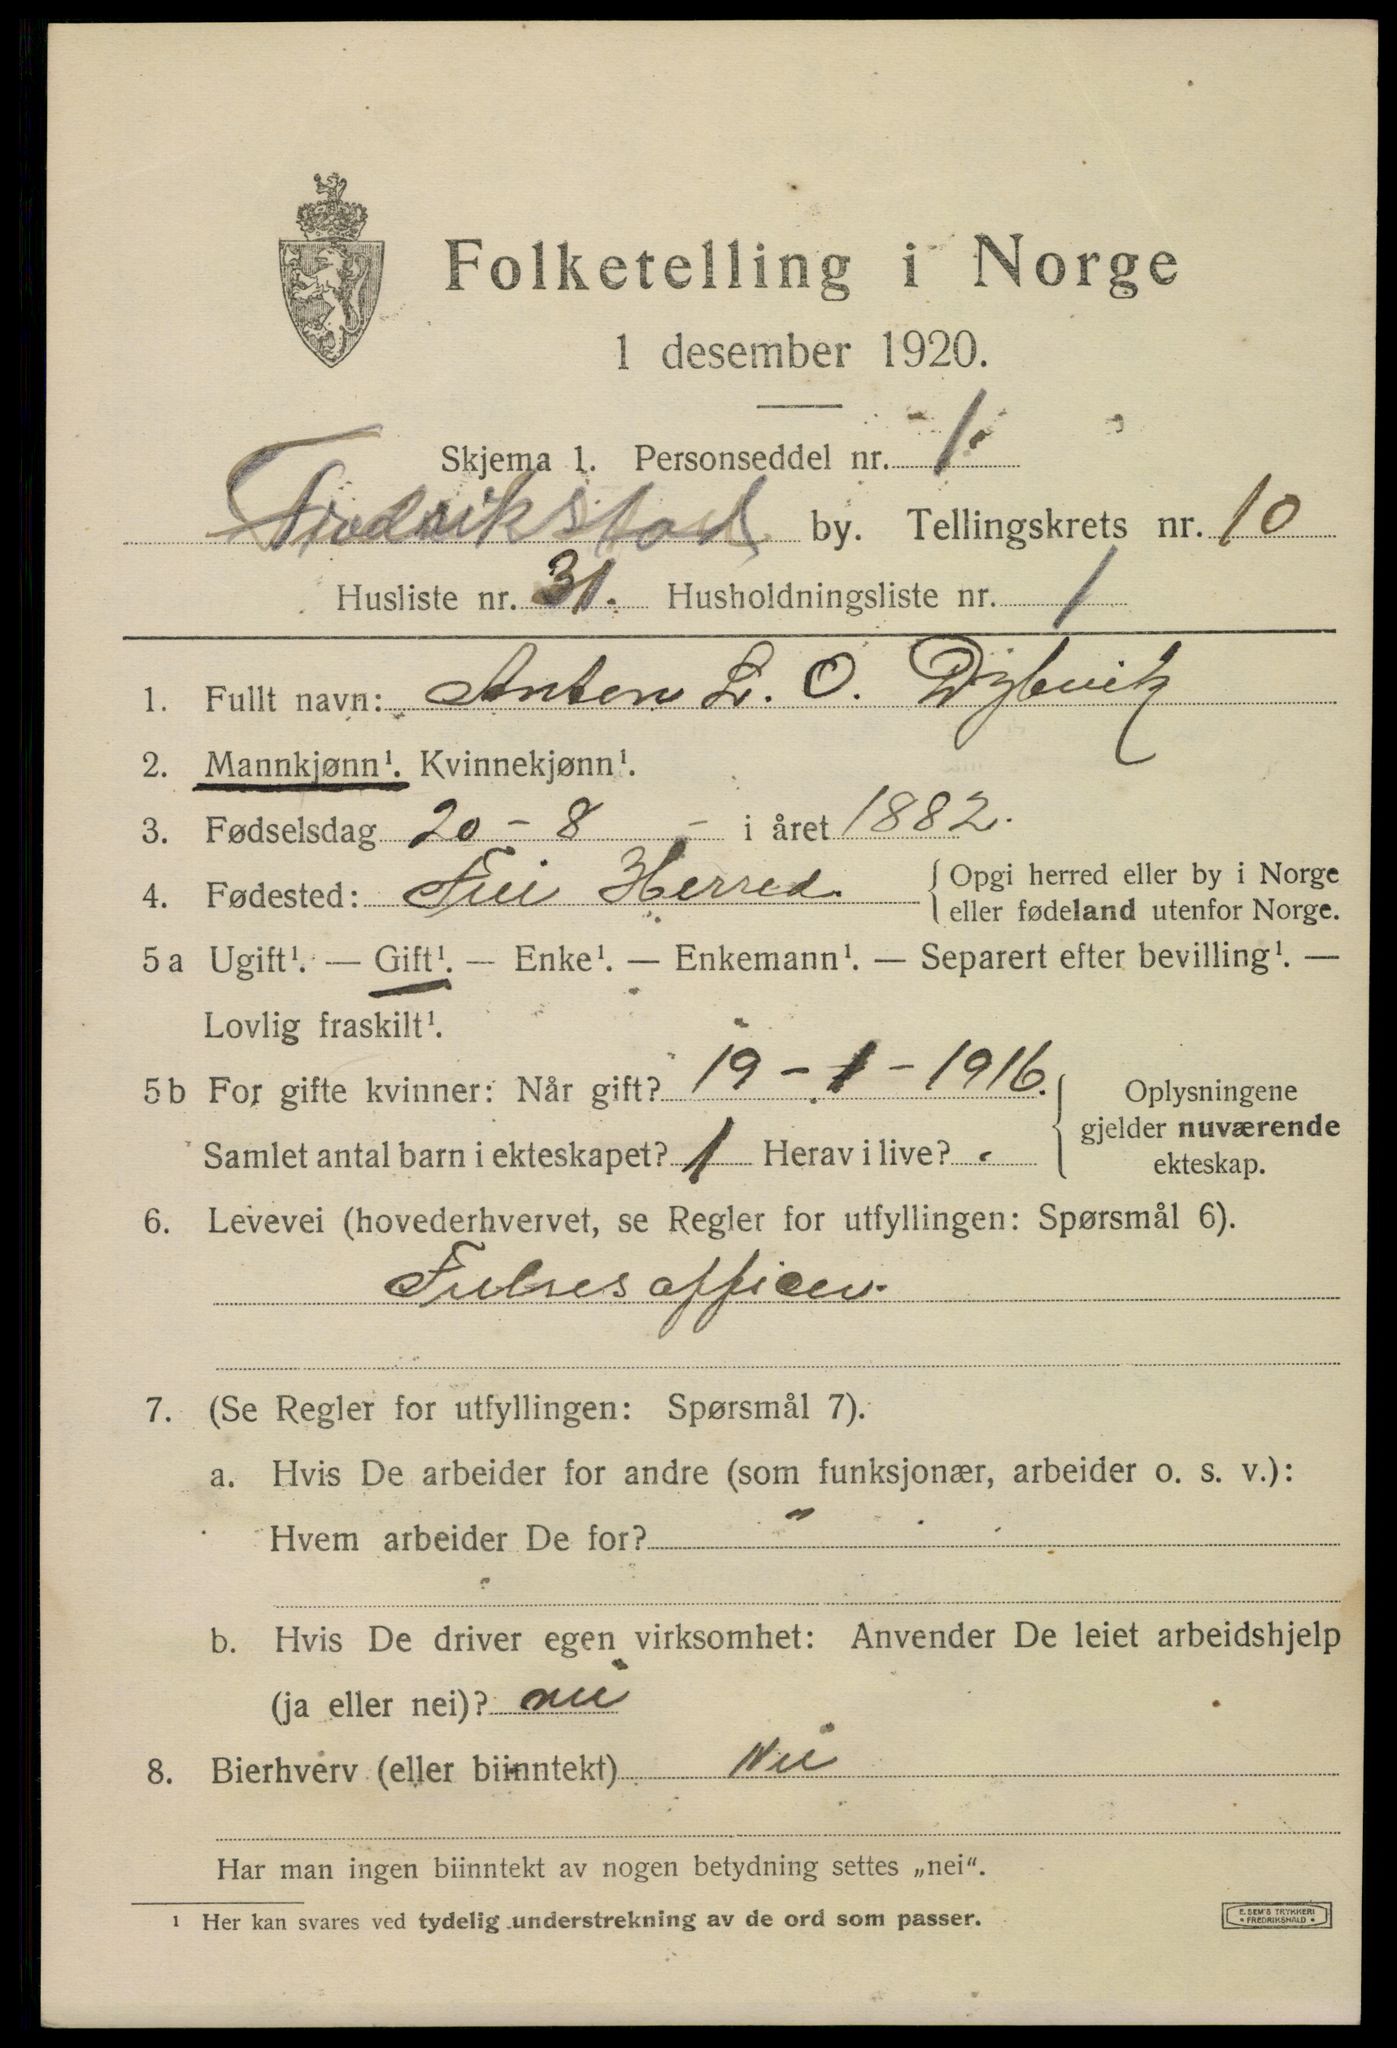 Folketelling i Norge
1 desember 1920.
Skjema 1. Personseddel nr. 1.
Fredrikstad by. Tellingskrets nr. 10
Husliste nr. 31. Husholdningsliste nr. 1
1. Fullt navn: Anton L. O. Dybvik
2. Mannkjønn¹. Kvinnekjønn¹.
3. Fødselsdag 20 - 8 - i året 1882.
4. Fødested: Frei Herred. { Opgi herred eller by i Norge
eller fødeland utenfor Norge.
5a Ugift¹. — Gift¹. — Enke¹. — Enkemann¹. — Separert efter bevilling¹. —
Lovlig fraskilt¹.
5b For gifte kvinner: Når gift? 19 - 1 - 1916. { Oplysningene
gjelder nuværende
ekteskap.
Samlet antal barn i ekteskapet? 1 Herav i live?
6. Levevei (hovederhvervet, se Regler for utfyllingen: Spørsmål 6).
Frelsesofficer.
7. (Se Regler for utfyllingen: Spørsmål 7).
a. Hvis De arbeider for andre (som funksjonær, arbeider o. s. v.):
Hvem arbeider De for? "
b. Hvis De driver egen virksomhet: Anvender De leiet arbeidshjelp
(ja eller nei)? nei
8. Bierhverv (eller biinntekt) Nei
Har man ingen biinntekt av nogen betydning settes „nei“.
¹ Her kan svares ved tydelig understrekning av de ord som passer.
E. SEM'S TRYKKERI
• FREDRIKSHALD •